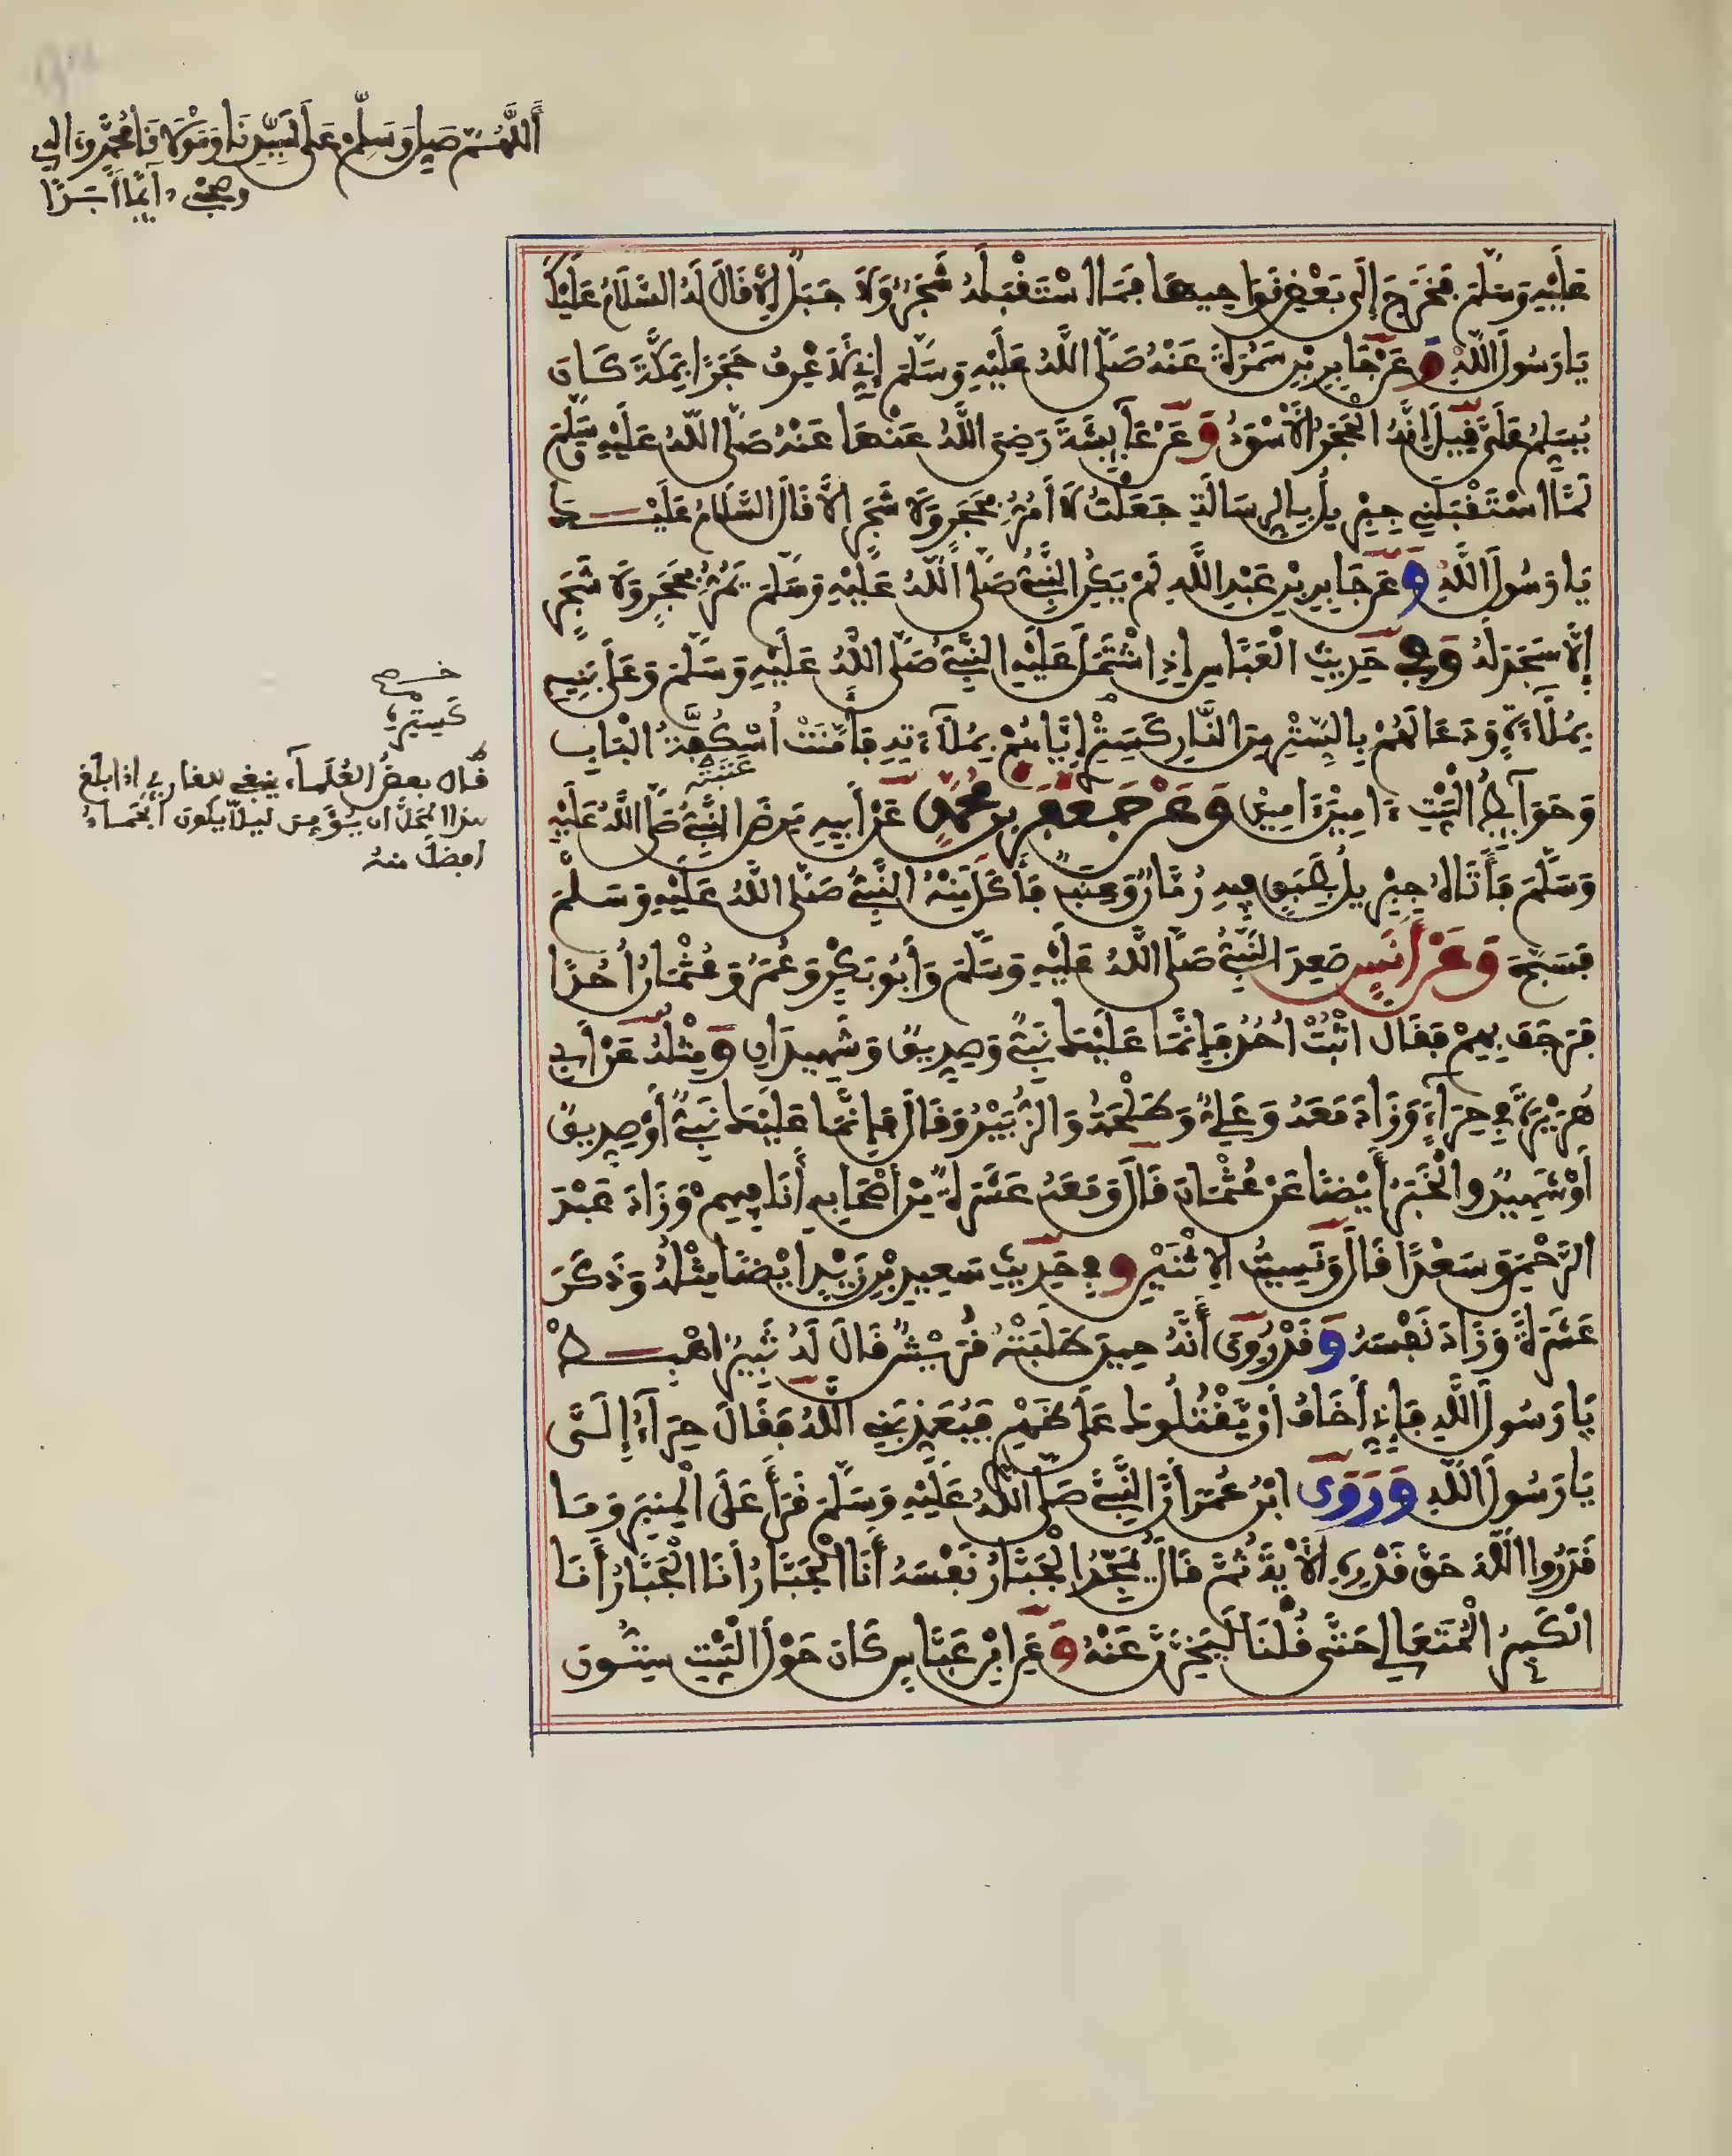 أَللَّهُمَّ صَلِّ وَسَلِّمْ عَلَى سَيِّدِنَا وَمَوْلَانَا مُحَمَّدٍ وَءَالِهِ
وصحبه دَآئِمًا أَبَدًا
عَلَيْهِ وَسَلَّمَ فَخَرَجَ إِلَى بَعْضِ نَوَاحِيهَا فَمَا اسْتَقْبَلَهُ شَجَرٌ وَلَا جَبَلٌ إِلَّا قَالَ لَهُ السَّلَامُ عَلَيْكَ
يَا رَسُولَ اللَّهِ وَعَنْ جَابِرِ بْنِ سَمُرَةَ عَنْهُ صَلَّى اللَّهُ عَلَيْهِ وَسَلَّمَ إِنِّي لَأَعْرِفُ حَجَرًا بِمَكَّةَ كَانَ
يُسَلِّمُ عَلَيَّ قِيلَ إِنَّهُ الْحَجَرُ الْأَسْوَدُ وَعَنْ عَآئِشَةَ رَضِيَ اللَّهُ عَنْهَا عَنْهُ صَلَّى اللَّهُ عَلَيْهِ وَسَلَّمَ
لَمَّا اسْتَقْبَلَنِي جِبْرِيلُ بِالرِّسَالَةِ جَعَلْتُ لَا أَمُرُّ بِحَجَرٍ وَلَا شَجَرٍ إِلَّا قَالَ السَّلَامُ عَلَيْكَ
يَا رَسُولَ اللَّهِ وَعَنْ جَابِرِ بْنِ عَبْدِ اللَّهِ لَمْ يَكُنِ النَّبِيُّ صَلَّى اللَّهُ عَلَيْهِ وَسَلَّمَ يَمُرُّ بِحَجَرٍ وَلَا شَجَرٍ
إِلَّا سَجَدَ لَهُ وَفِي حَدِيثِ الْعَبَّاسِ إِذِ اشْتَمَلَ عَلَيْهِ النَّبِيُّ صَلَّى اللَّهُ عَلَيْهِ وَسَلَّمَ وَعَلَى بَنِيهِ
بِمُلَآءَةٍ وَدَعَا لَهُمْ بِالسِّتْرِ مِنَ النَّارِ كَسِتْرِهِ إِيَّاهُمْ بِمُلَآءَتِهِ فَأَمَّنَتْ أُسْكُفَّةُ الْبَابِ
عَتَبَةُ
وَحَوَآئِطُ الْبَيْتِ ءَامِينَ ءَامِينَ وَعَنْ جَعْفَرِ بْنِ مُحَمَّدٍ عَنْ أَبِيهِ مَرِضَ النَّبِيُّ صَلَّى اللَّهُ عَلَيْهِ
وَسَلَّمَ فَأَتَاهُ جِبْرِيلُ بِطَبَقٍ فِيهِ رُمَّانٌ وَعِنَبٌ فَأَكَلَ مِنْهُ النَّبِيُّ صَلَّى اللَّهُ عَلَيْهِ وَسَلَّمَ
فَسَبَّحَ وَعَنْ أَنَسٍ صَعِدَ النَّبِيُّ صَلَّى اللَّهُ عَلَيْهِ وَسَلَّمَ وَأَبُو بَكْرٍ وَعُمَرُ وَعُثْمَانُ أُحُدًا
فَرَجَفَ بِهِمْ فَقَالَ اثْبُتْ أُحُدُ فَإِنَّمَا عَلَيْكَ نَبِيٌّ وَصِدِّيقٌ وَشَهِيدَانِ وَمِثْلُهُ عَنْ أَبِي
هُرَيْرَةَ فِي حِرَآءٍ وَزَادَ مَعَهُ وَعَلِيٌّ وَطَلْحَةُ وَالزُّبَيْرُ وَقَالَ فَإِنَّمَا عَلَيْكَ نَبِيٌّ أَوْ صِدِّيقٌ
أَوْ شَهِيدٌ وَالْخَبَرُ أَيْضًا عَنْ عُثْمَانَ قَالَ وَمَعَهُ عَشَرَةٌ مِنْ أَصْحَابِهِ أَنَا فِيهِمْ وَزَادَ عَبْدَ
الرَّحْمَنِ وَسَعْدًا قَالَ وَنَسِيتُ الِاثْنَيْنِ وَفِي حَدِيثِ سَعِيدِ بْنِ زَيْدٍ أَيْضًا مِثْلُهُ وَذَكَرَ
عَشَرَةً وَزَادَ نَفْسَهُ وَقَدْ رُوِيَ أَنَّهُ حِينَ طَلَبَتْهُ قُرَيْشٌ قَالَ لَهُ ثَبِيرٌ اهْبِطْ
يَا رَسُولَ اللَّهِ فَإِنِّي أَخَافُ أَنْ يَقْتُلُوكَ عَلَى ظَهْرِي فَيُعَذِّبَنِي اللَّهُ فَقَالَ حِرَآءٌ إِلَيَّ
يَا رَسُولَ اللَّهِ وَرَوَى ابْنُ عُمَرَ أَنَّ النَّبِيَّ صَلَّى اللَّهُ عَلَيْهِ وَسَلَّمَ قَرَأَ عَلَى الْمِنْبَرِ وَمَا
قَدَرُوا اللَّهَ حَقَّ قَدْرِهِ الْأَيَةَ ثُمَّ قَالَ يُمَجِّدُ الْجَبَّارُ نَفْسَهُ أَنَا الْجَبَّارُ أَنَا الْجَبَّارُ أَنَا
الْكَبِيرُ الْمُتَعَالِي حَتَّى قُلْنَا لَيَخِرَّنَّ عَنْهُ وَعَنِ ابْنِ عَبَّاسٍ كَانَ حَوْلَ الْبَيْتِ سِتُّونَ
قال بعضُ العُلَمآء ينبغي للقارئ إذا بلغ
هذا المَحَلَّ أن يُؤَمِّن ليلّا يكون الجماد
أفضلَ منه